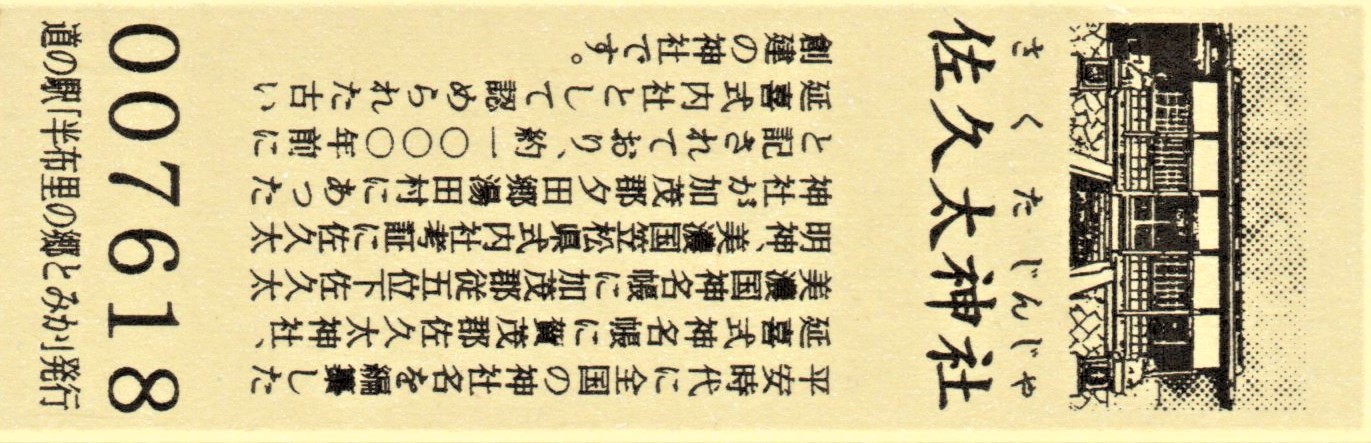 さくたじんじゃ
佐久太神社
平安時代に全国の神社名を編纂した
延喜式神名帳に賀茂郡佐久太神社、
美濃国神名帳に加茂郡従五位下佐久太
明神、美濃国笠松県式内社考証に佐久太
神社が加茂郡夕田郷湯田村にあった
と記されており、約一〇〇〇年前に
延喜式内社として認められた古い
創建の神社です。
007618
道の駅「半布里の郷とみか」発行